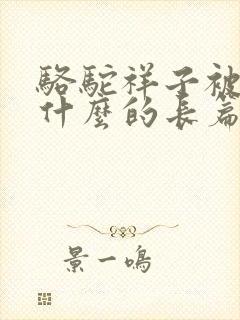 駱駝祥子被
什麼的長篇
景一鳴